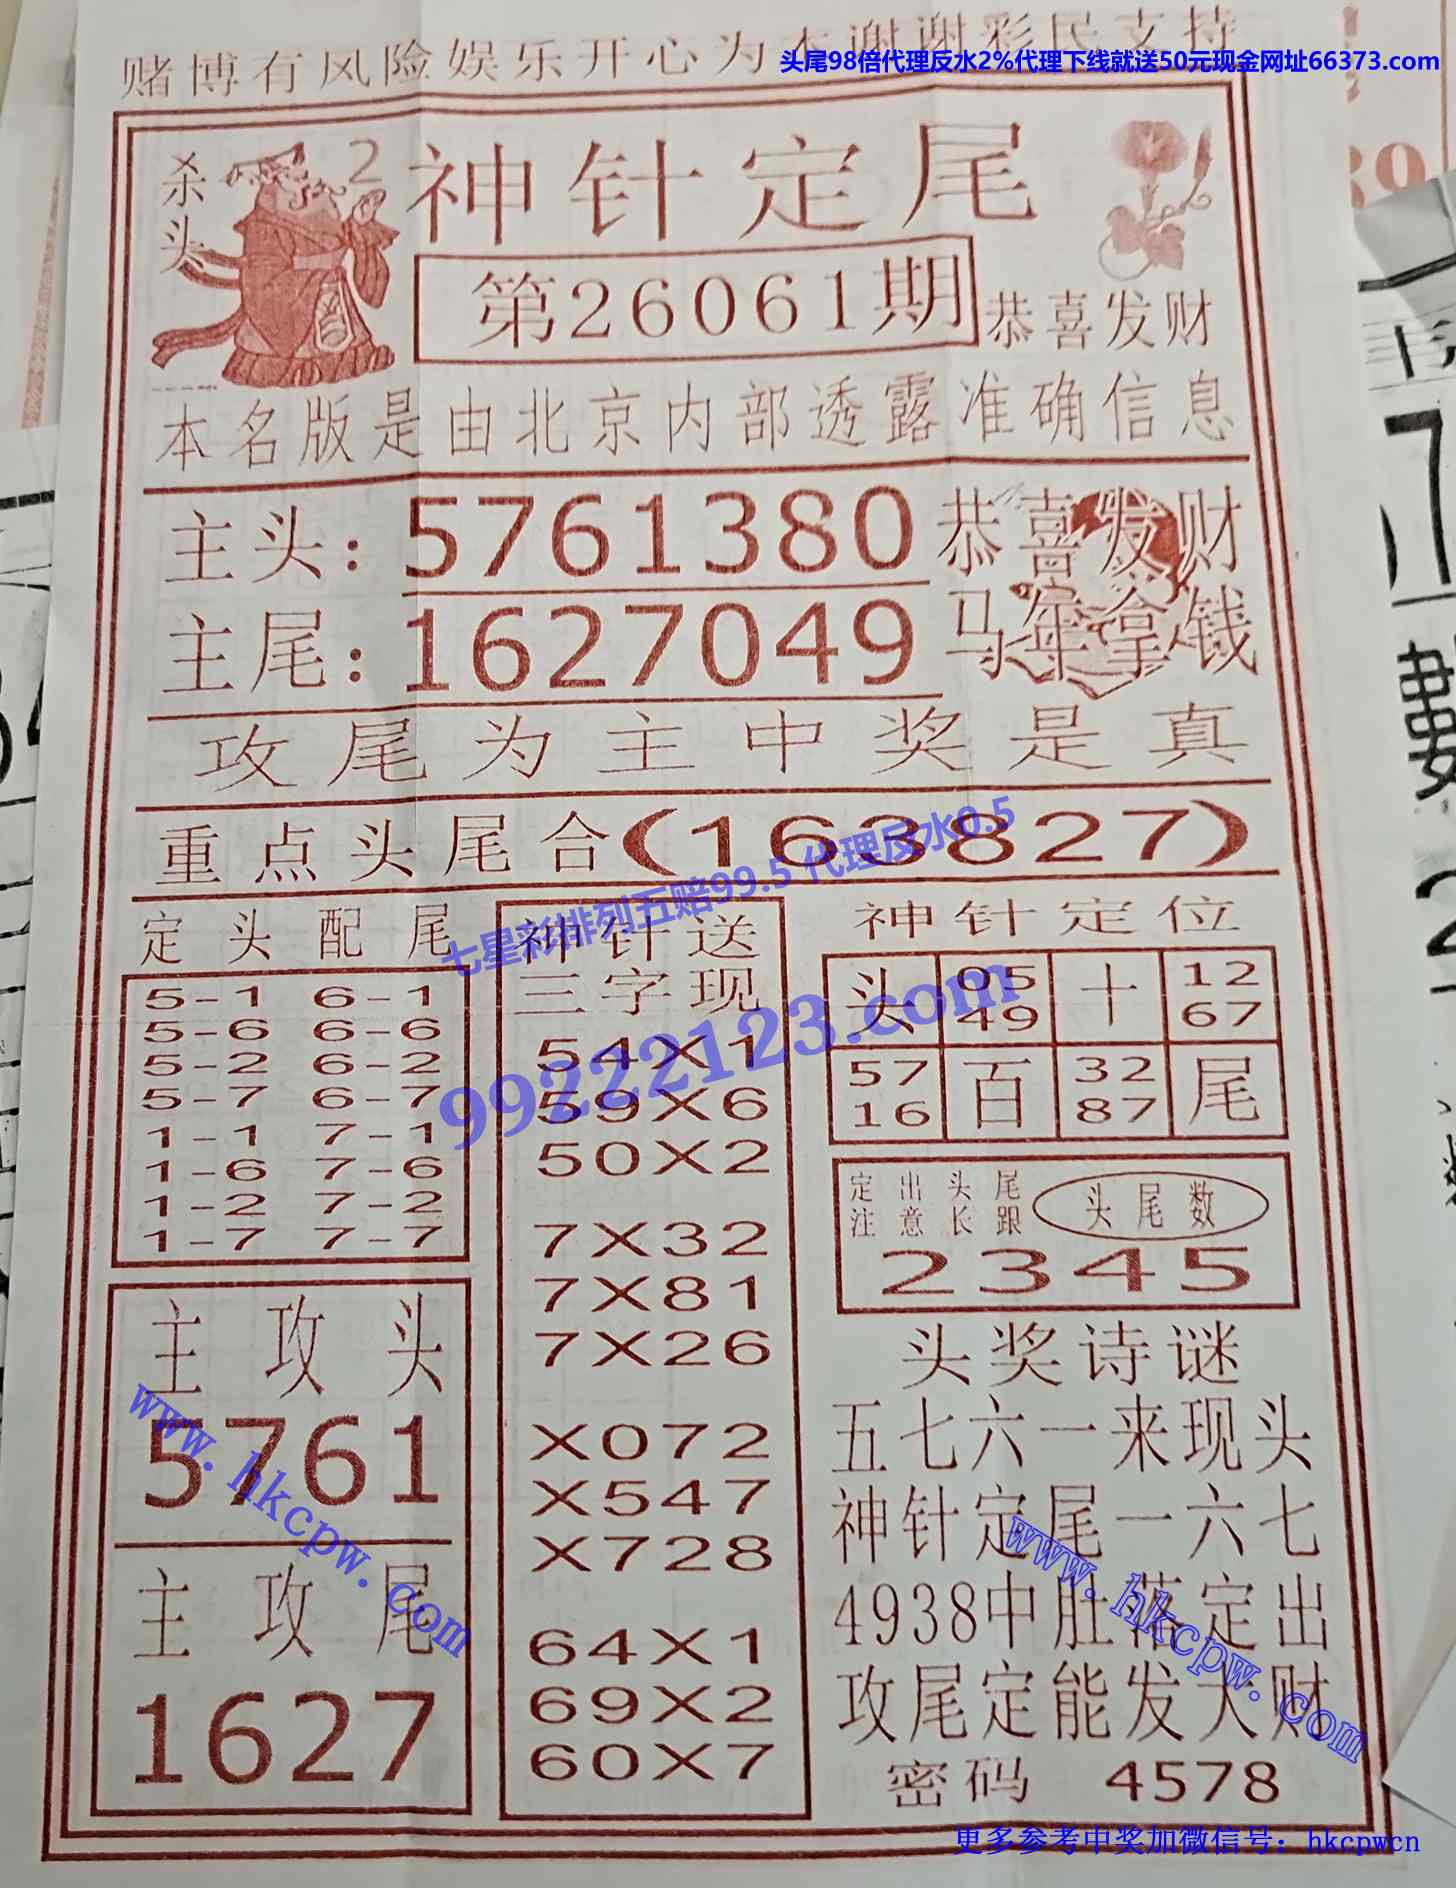 赌博有风险娱乐开心为本谢谢彩民支持
头尾98倍代理反水2%代理下线就送50元现金网址66373.com
杀头 2
神针定尾
第26061期
恭喜发财
本名版是由北京内部透露准确信息
主头:5761380
恭喜发财
主尾:1627049
马年拿钱
攻尾为主中奖是真
重点头尾合(163827)
七星彩排列五赔99.5 代理反水0.5
99222123.com
定头配尾
5-1 6-1
5-6 6-6
5-2 6-2
5-7 6-7
1-1 7-1
1-6 7-6
1-2 7-2
1-7 7-7
主攻头
5761
主攻尾
1627
www.hkcpw.com
神针送
三字现
54X1
59X6
50X2
7X32
7X81
7X26
X072
X547
X728
64X1
69X2
60X7
神针定位
头 05 十 12
49 67
57 百 32 尾
16 87
定出头尾
注意长跟
头尾数
2345
头奖诗谜
五七六一来现头
神针定尾一六七
4938中肚落定出
攻尾定能发大财
密码 4578
www.hkcpw.com
更多参考中奖加微信号: hkcpwcn